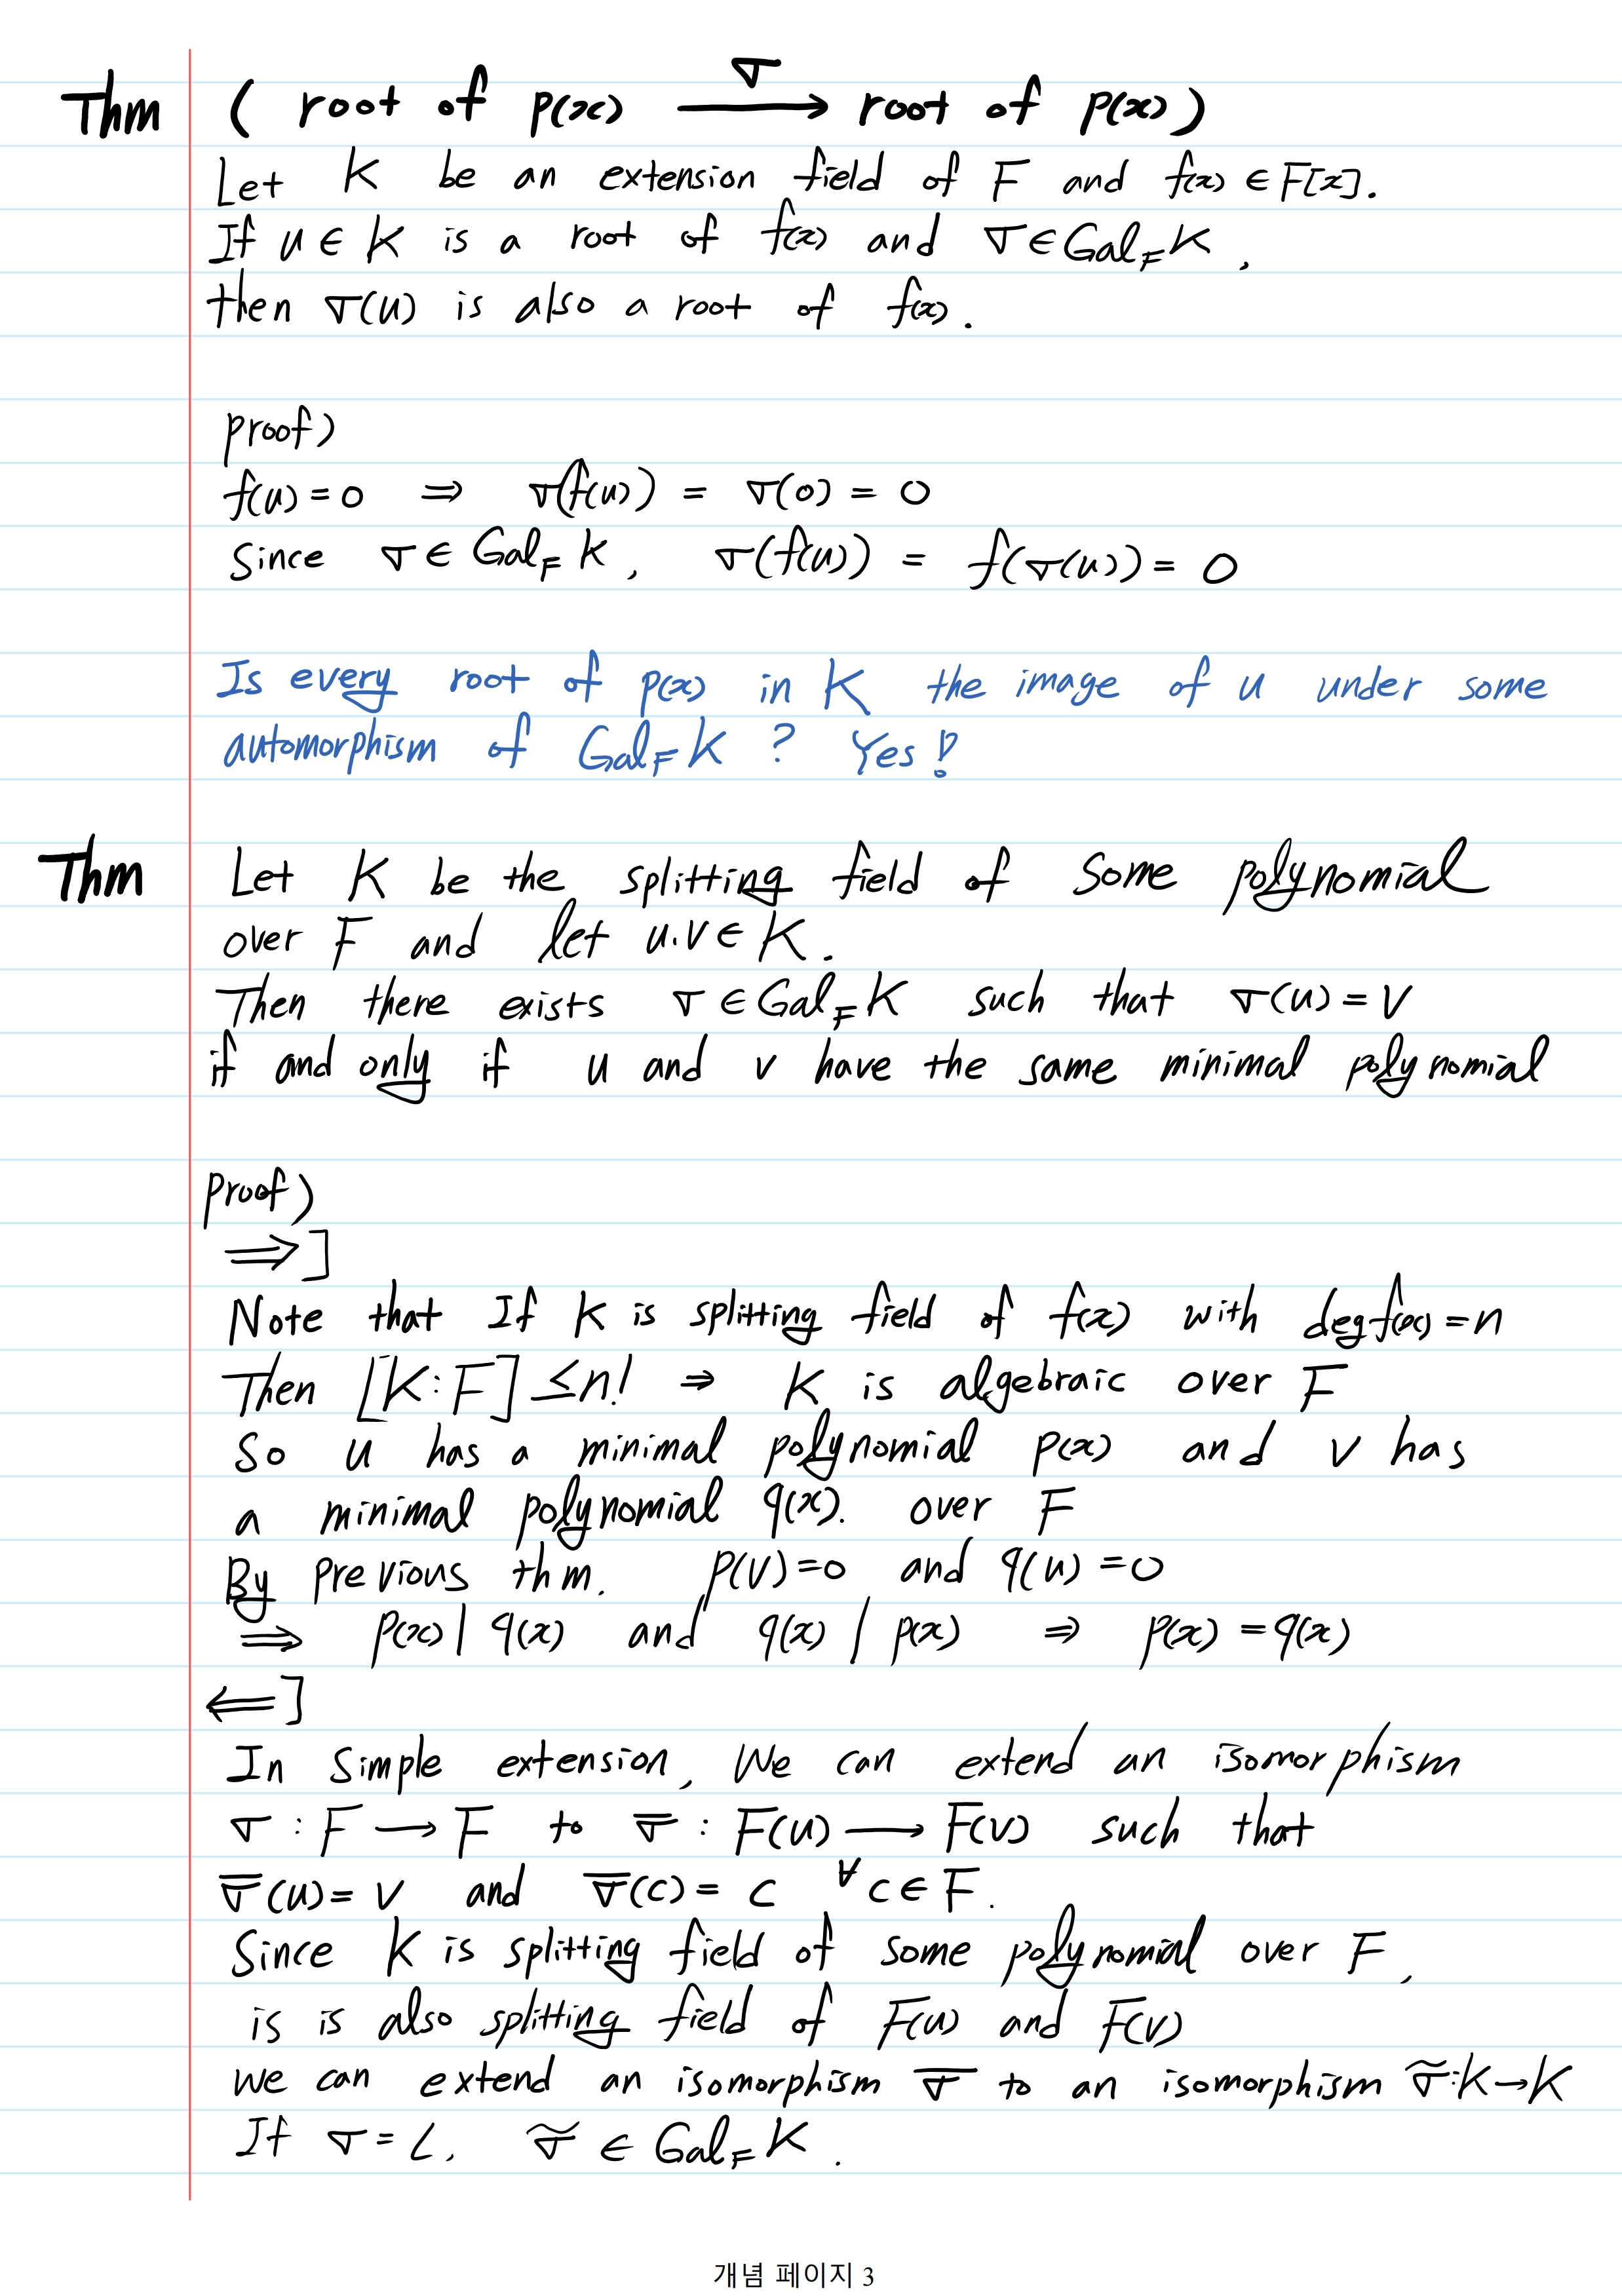 Thm ( root of p(x) σ⟶ root of p(x) )
Let K be an extension field of F and f(x) ∈ F[x].
If u ∈ K is a root of f(x) and σ ∈ Gal_F K ,
then σ(u) is also a root of f(x).
proof)
f(u) = 0 ⇒ σ(f(u)) = σ(0) = 0
Since σ ∈ Gal_F K , σ(f(u)) = f(σ(u)) = 0
Is every root of p(x) in K the image of u under some
automorphism of Gal_F K ? Yes!
Thm Let K be the splitting field of some polynomial
over F and let u.v ∈ K.
Then there exists σ ∈ Gal_F K such that σ(u) = v
if and only if u and v have the same minimal polynomial
Proof)
⟹]
Note that If K is splitting field of f(x) with deg f(x) = n
Then [K:F] ≤ n! ⇒ K is algebraic over F
So u has a minimal polynomial p(x) and v has
a minimal polynomial q(x). over F
By previous thm. p(v)=0 and q(u)=0
⟹ p(x) | q(x) and q(x) | p(x) ⇒ p(x) = q(x)
⟸]
In simple extension, We can extend an isomorphism
σ : F ⟶ F to σ̅ : F(u) ⟶ F(v) such that
σ̅(u) = v and σ̅(c) = c ∀c ∈ F.
Since K is splitting field of some polynomial over F,
is is also splitting field of F(u) and F(v)
we can extend an isomorphism σ̅ to an isomorphism σ̃:K→K
If σ = ι, σ̃ ∈ Gal_F K .
개념 페이지 3